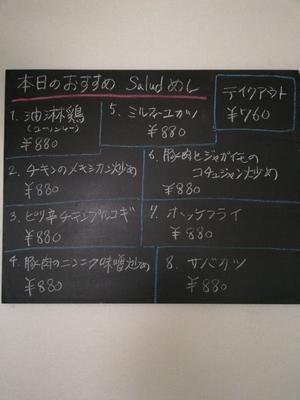 本日のおすすめ Saludめし
1. 油淋鶏
(ユーリンチー)
¥880
2. チキンのメキシカン炒め
¥880
3. ピリ辛チキンプルコギ
¥880
4. 豚肉のニンニク味噌炒め
¥880
5. ミルフィーユカツ
¥880
6. 豚肉とジャガイモの
コチュジャン炒め
¥880
7. ホッケフライ
¥880
8. サバカツ
¥880
テイクアウト
¥760